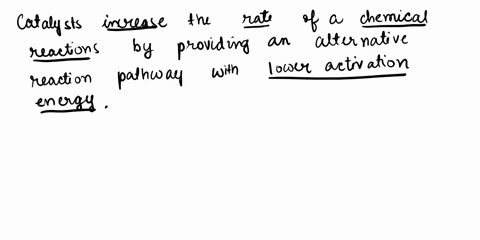 Catalysts increase the rate of a chemical
reactions by providing an alternative
reaction pathway with lower activation
energy.